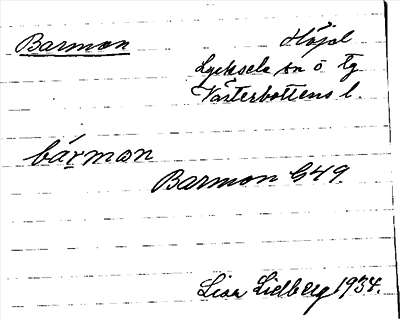 Barmon Höjd
Lycksele sn o Tg
Västerbottens l.
bármon
Barmon G49.
Lisa Lidberg 1934.